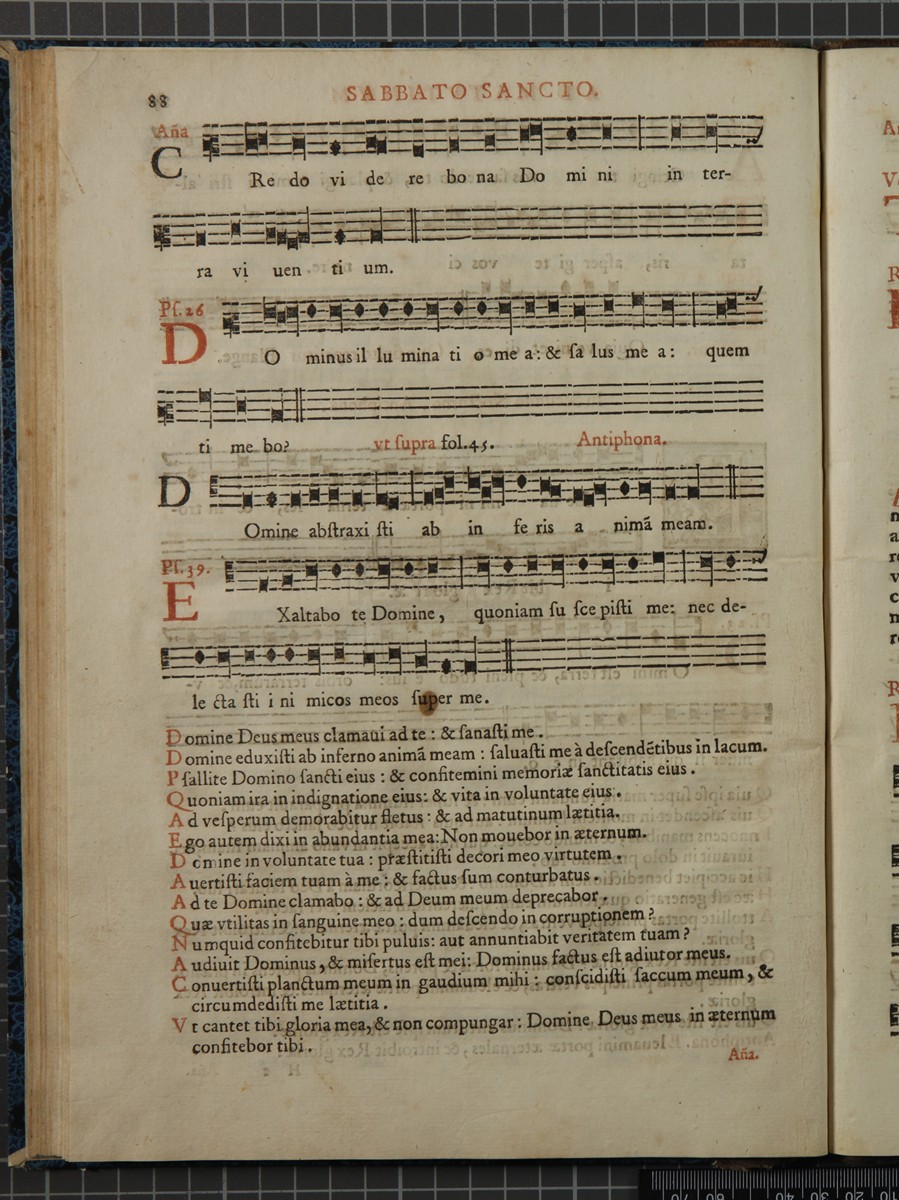 88
SABBATO SANCTO.
Aña
CRe do vi de re bo na Do mi ni in ter-
ra vi uen ti um.
Pſ.26
DO minus il lu mina ti o me a: & ſa lus me a: quem
ti me bo? vt ſupra fol.45. Antiphona.
DOmine abſtraxi ſti ab in fe ris a nimã meam.
Pſ.39.
EXaltabo te Domine, quoniam ſu ſce piſti me: nec de-
le cta ſti i ni micos meos ſuper me.
Domine Deus meus clamaui ad te : & ſanaſti me .
Domine eduxiſti ab inferno animã meam : ſaluaſti me à deſcendẽtibus in lacum.
Pſallite Domino ſancti eius : & confitemini memoriæ ſanctitatis eius .
Quoniam ira in indignatione eius: & vita in voluntate eius .
Ad veſperum demorabitur fletus : & ad matutinum lætitia.
Ego autem dixi in abundantia mea: Non mouebor in æternum.
Domine in voluntate tua : præſtitiſti decori meo virtutem .
Auertiſti faciem tuam à me : & factus ſum conturbatus .
Ad te Domine clamabo : & ad Deum meum deprecabor .
Quæ vtilitas in ſanguine meo : dum deſcendo in corruptionem ?
Numquid confitebitur tibi puluis: aut annuntiabit veritatem tuam ?
Audiuit Dominus , & miſertus eſt mei: Dominus factus eſt adiutor meus.
Conuertiſti planctum meum in gaudium mihi : conſcidiſti ſaccum meum , &
circumdediſti me lætitia .
Vt cantet tibi gloria mea, & non compungar : Domine Deus meus in æternum
confitebor tibi .
Aña.